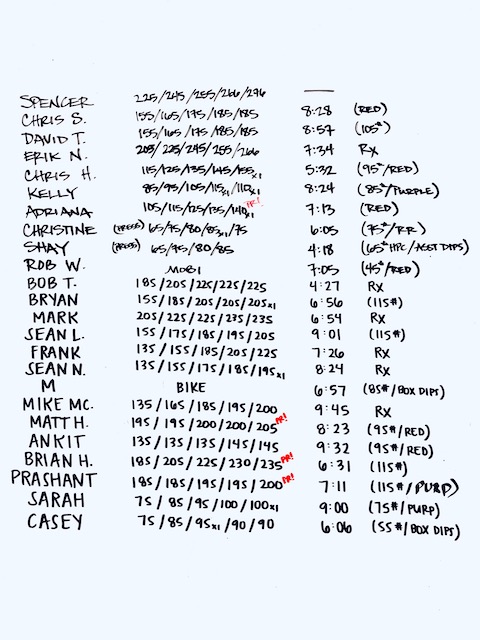 SPENCER 225/245/255/266/276 —
CHRIS S. 155/165/175/185/185 8:28 (RED)
DAVID T. 155/165/175/185/185 8:57 (105#)
ERIK N. 205/225/245/255/266 7:34 Rx
CHRIS H. 115/125/135/145/155x1 5:32 (95#/RED)
KELLY 85/95/105/115x1/110x1 8:24 (85#/PURPLE)
ADRIANA 105/115/125/135/140x1 PR! 7:13 (RED)
CHRISTINE (PRESS) 65/75/80/85x1/75 6:05 (75#/RR)
SHAY (PRESS) 65/75/80/85 4:18 (65# HPC/ASST DIPS)
ROB W. MOBI 7:05 (45#/RED)
BOB T. 185/205/225/225/225 4:27 Rx
BRYAN 155/185/205/205/205x1 6:56 (115#)
MARK 205/225/225/235/235 6:54 Rx
SEAN L. 155/175/185/195/205 9:01 (115#)
FRANK 135/155/185/205/225 7:26 Rx
SEAN N. 135/155/175/185/195x1 8:24 Rx
M BIKE 6:57 (85#/BOX DIPS)
MIKE MC. 135/165/185/195/200 9:45 Rx
MATT H. 195/195/200/200/205 PR! 8:23 (95#/RED)
ANKIT 135/135/135/145/145 9:32 (95#/RED)
BRIAN H. 185/205/225/230/235 PR! 6:31 (115#)
PRASHANT 185/185/195/195/200 PR! 7:11 (115#/PURP)
SARAH 75/85/95/100/100x1 9:00 (75#/PURP)
CASEY 75/85/95x1/90/90 6:06 (55#/BOX DIPS)